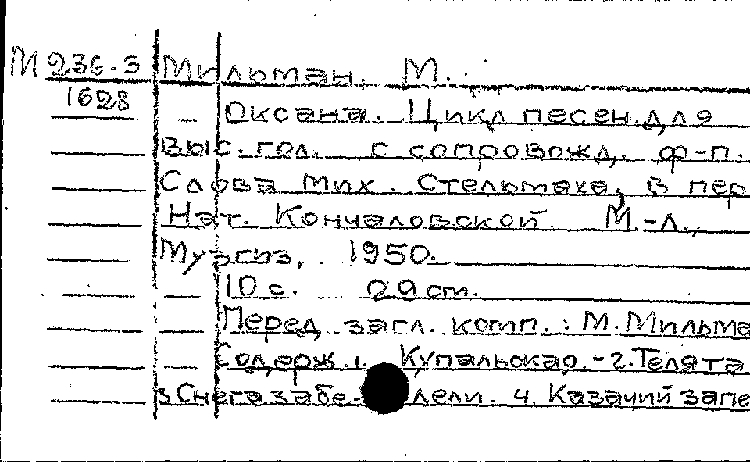 М 236-3 Мильман. М.
1628 – Оксана. Цикл песен для
выс. гол. с сопровожд. ф-п.
Слова Мих. Стельмаха, в пер
Нат. Кончаловской М.-Л.,
Музгиз, 1950.
10 с. 29 cm.
Перед загл. комп.: М. Мильма
Содерж. 1. Купальская. - 2. Телята
3 Снега забе- лели. 4. Казачий запе